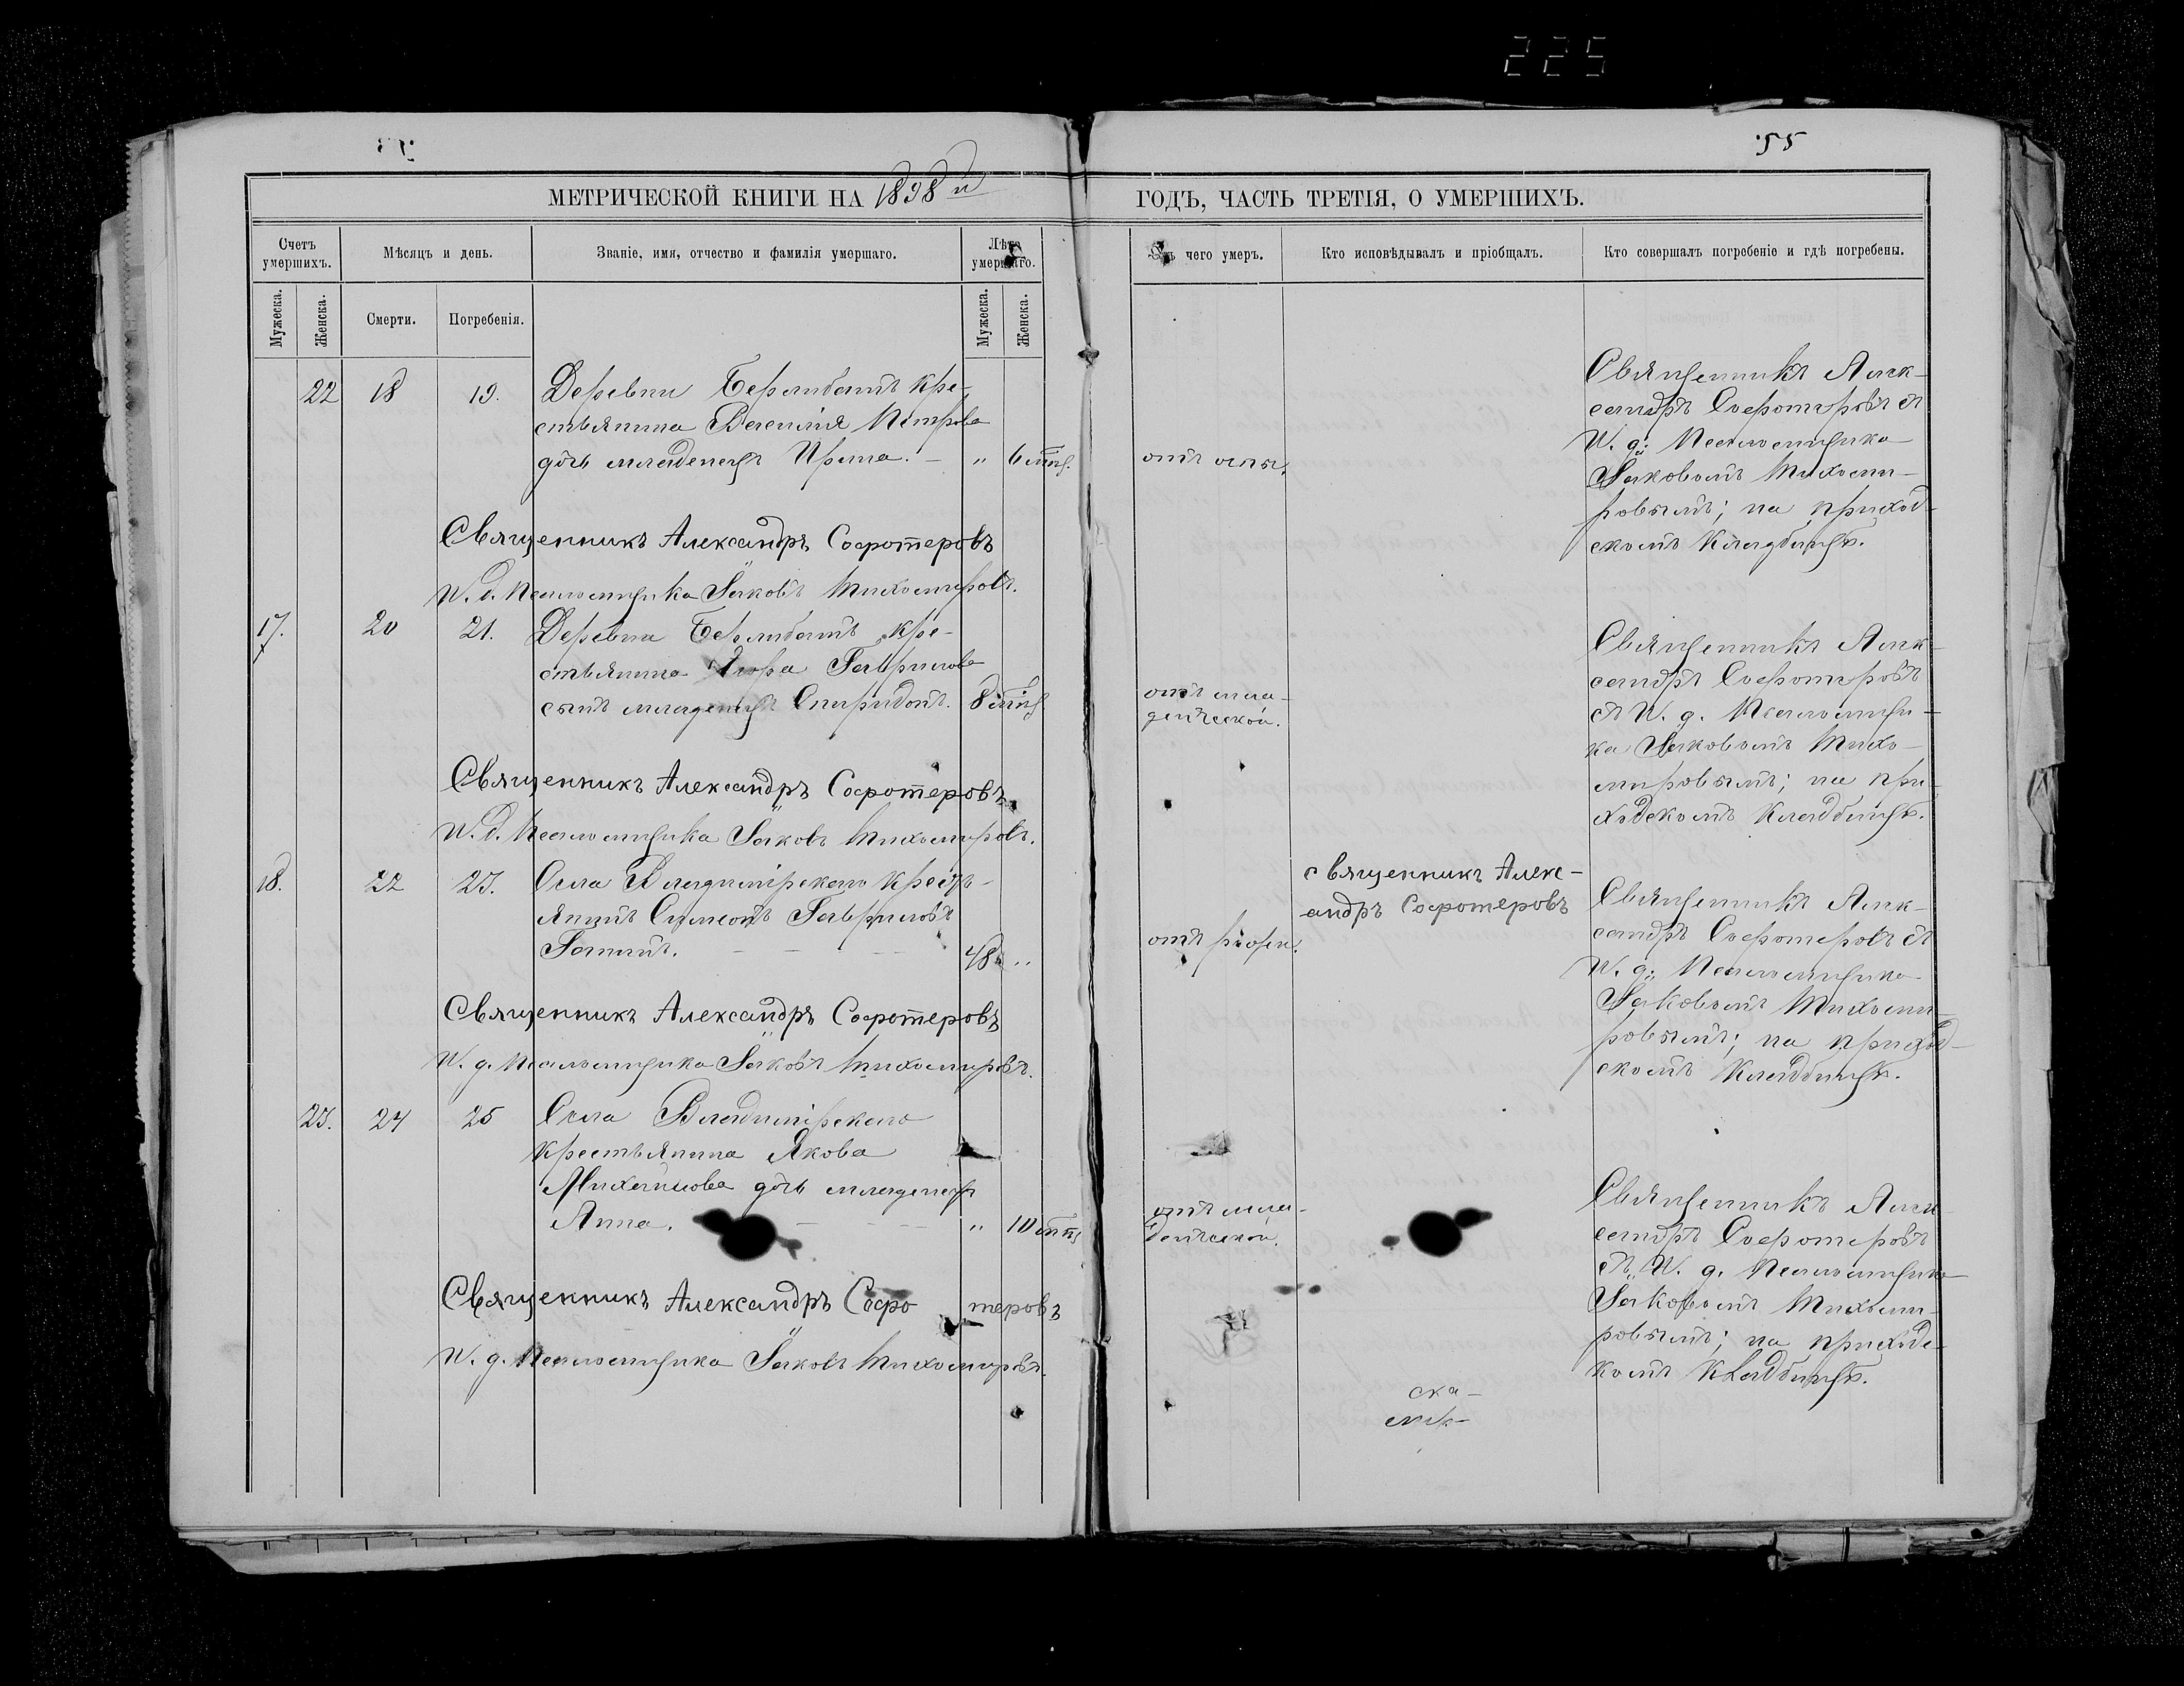 225
55
МЕТРИЧЕСКОЙ КНИГИ НА 1898й ГОДЪ, ЧАСТЬ ТРЕТІЯ, О УМЕРШИХЪ.
Счетъ умершихъ.
Мѣсяцъ и день.
Званіе, имя, отчество и фамилія умершаго.
Лѣта умершаго.
Отъ чего умеръ.
Кто исповѣдывалъ и пріобщалъ.
Кто совершалъ погребеніе и гдѣ погребены.
Мужеска.
Женска.
Смерти.
Погребенія.
Мужеска.
Женска.
22 18 19. Деревни кре-
стьянина Василія Петрова
дочь младенецъ Ирина. — " 6 мѣц.
отъ оспы.
Священникъ Алек-
сандръ Сосфотеровъ съ
И. д. Псаломщика
Яковомъ Тихоми-
ровымъ; на приход-
скомъ кладбищѣ.
Священникъ Александръ Сосфотеровъ
И. д. Псаломщика Яковъ Тихомировъ.
17. 20 21. Деревни кре-
стьянина Гаврилова
сынъ младенецъ Спиридонъ. 8 мѣц
отъ мла-
денческой.
Священникъ Алек-
сандръ Сосфотеровъ
съ И. д. Псаломщи-
ка Яковомъ Тихо-
мировымъ; на при-
ходскомъ кладбищѣ.
Священникъ Александръ Сосфотеровъ
И. д. Псаломщика Яковъ Тихомировъ.
18. 22 23. Села Владимірскаго кресть-
янинъ Симеонъ Гавриловъ
48 "
Священникъ Алекс-
андръ Сосфотеровъ
Священникъ Алек-
сандръ Сосфотеровъ съ
И. д. Псаломщика
Яковомъ Тихоми-
ровымъ; на приход-
скомъ кладбищѣ.
Священникъ Александръ Сосфотеровъ
И. д. Псаломщика Яковъ Тихомировъ.
23. 24 25 Села Владимірскаго
крестьянина Якова
Михайлова дочь младенецъ
Анна. — " 10 мѣц
отъ мла-
денческой.
Священникъ Алек-
сандръ Сосфотеровъ
съ И. д. Псаломщика
Яковомъ Тихоми-
ровымъ; на приходс-
комъ кладбищѣ.
Священникъ Александръ Сосфотеровъ
И. д. Псаломщика Яковъ Тихомировъ.
ска-